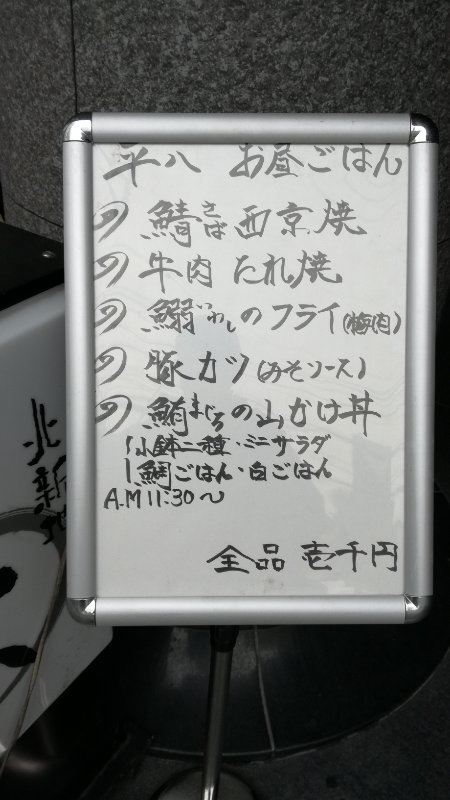 平八 お昼ごはん
鯖さば西京焼
牛肉 たれ焼
鰯いわしのフライ(梅肉)
豚カツ(みそソース)
鮪まぐろの山かけ丼
小鉢二種・ミニサラダ
鯛ごはん・白ごはん
A.M 11:30〜
全品 壱千円
北新地